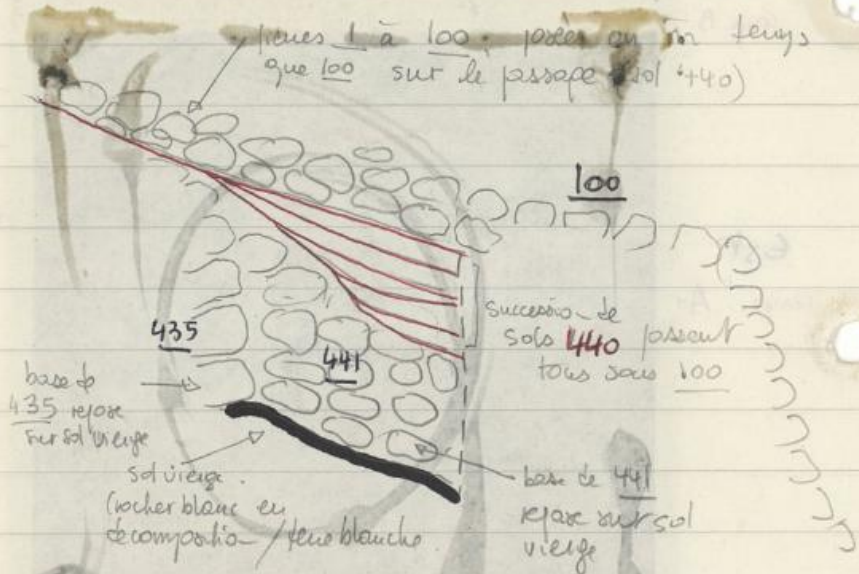 pierres 1 à 100 : posées en m̂ temps
que 100 sur le passage (sol 440)
100
succession de
sols 440 passent
tous sous 100
435
441
base de
435 repose
sur sol vierge
sol vierge.
(rocher blanc en
décomposition / terre blanche.
base de 441
repose sur sol
vierge